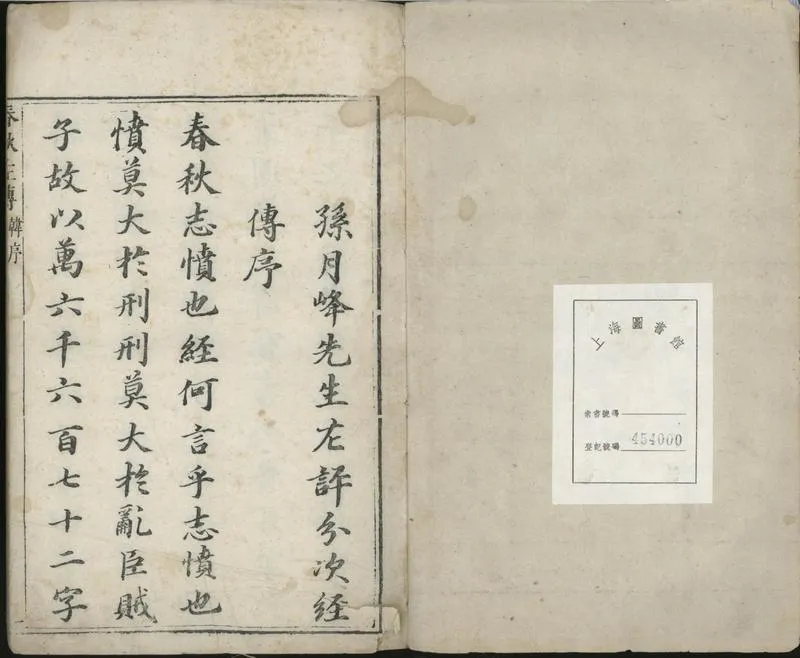 上海圖書館
索書號碼
登記號碼 454000
孫月峰先生左評分次經
傳序
春秋志憤也經何言乎志憤也
憤莫大於刑刑莫大於亂臣賊
子故以萬六千六百七十二字
春秋左傳 韓序